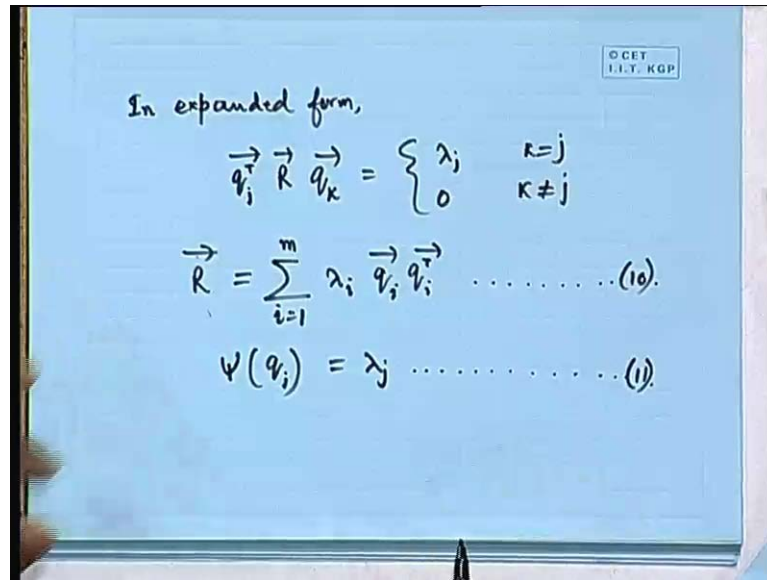 © CET
I.I.T. KGP
In expanded form,
$\vec{q_j^T} \vec{R} \vec{q_k} = \begin{cases} \lambda_j & k = j \\ 0 & k \neq j \end{cases}$
$\vec{R} = \sum_{i=1}^{m} \lambda_i \vec{q_i} \vec{q_i^T}$ ........(10).
$\psi(q_j) = \lambda_j$ ............(11).